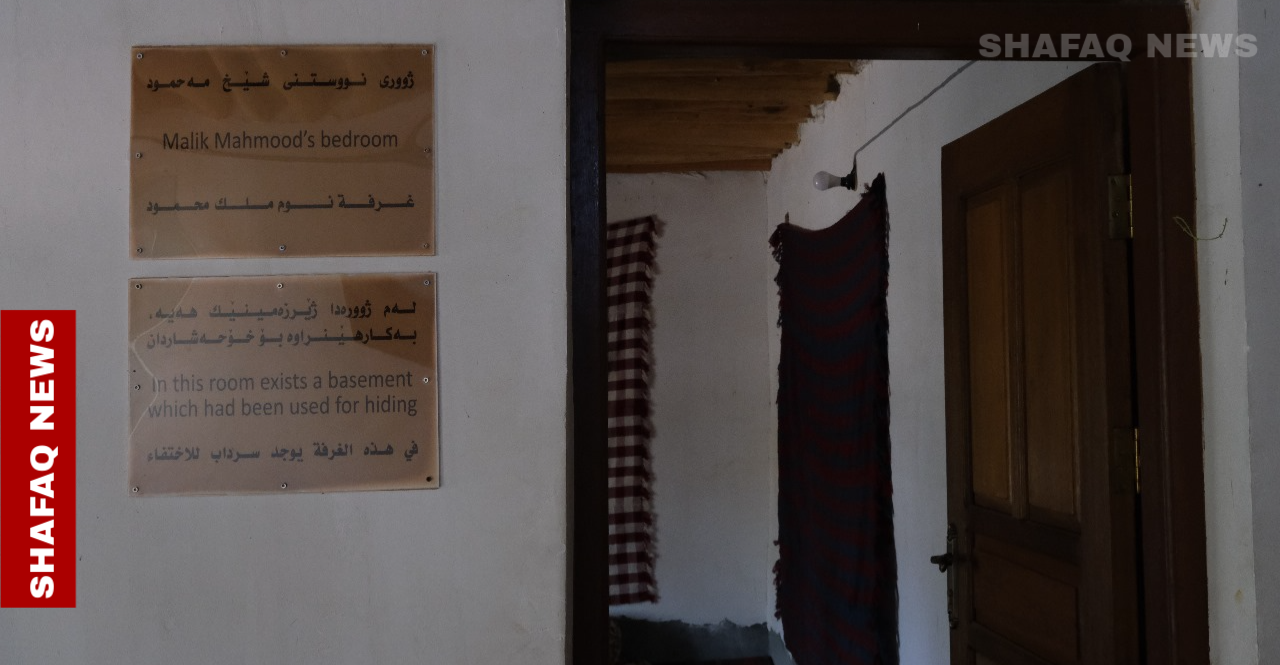 SHAFAQ NEWS
ژووری نووستنی شێخ مەحمود
Malik Mahmood's bedroom
غرفة نوم ملك محمود
لەم ژوورەدا ژێرزەمینێك هەیە،
بەکارهێنراوە بۆ خۆحەشاردان
in this room exists a basement
which had been used for hiding
في هذه الغرفة يوجد سرداب للاختفاء
SHAFAQ NEWS